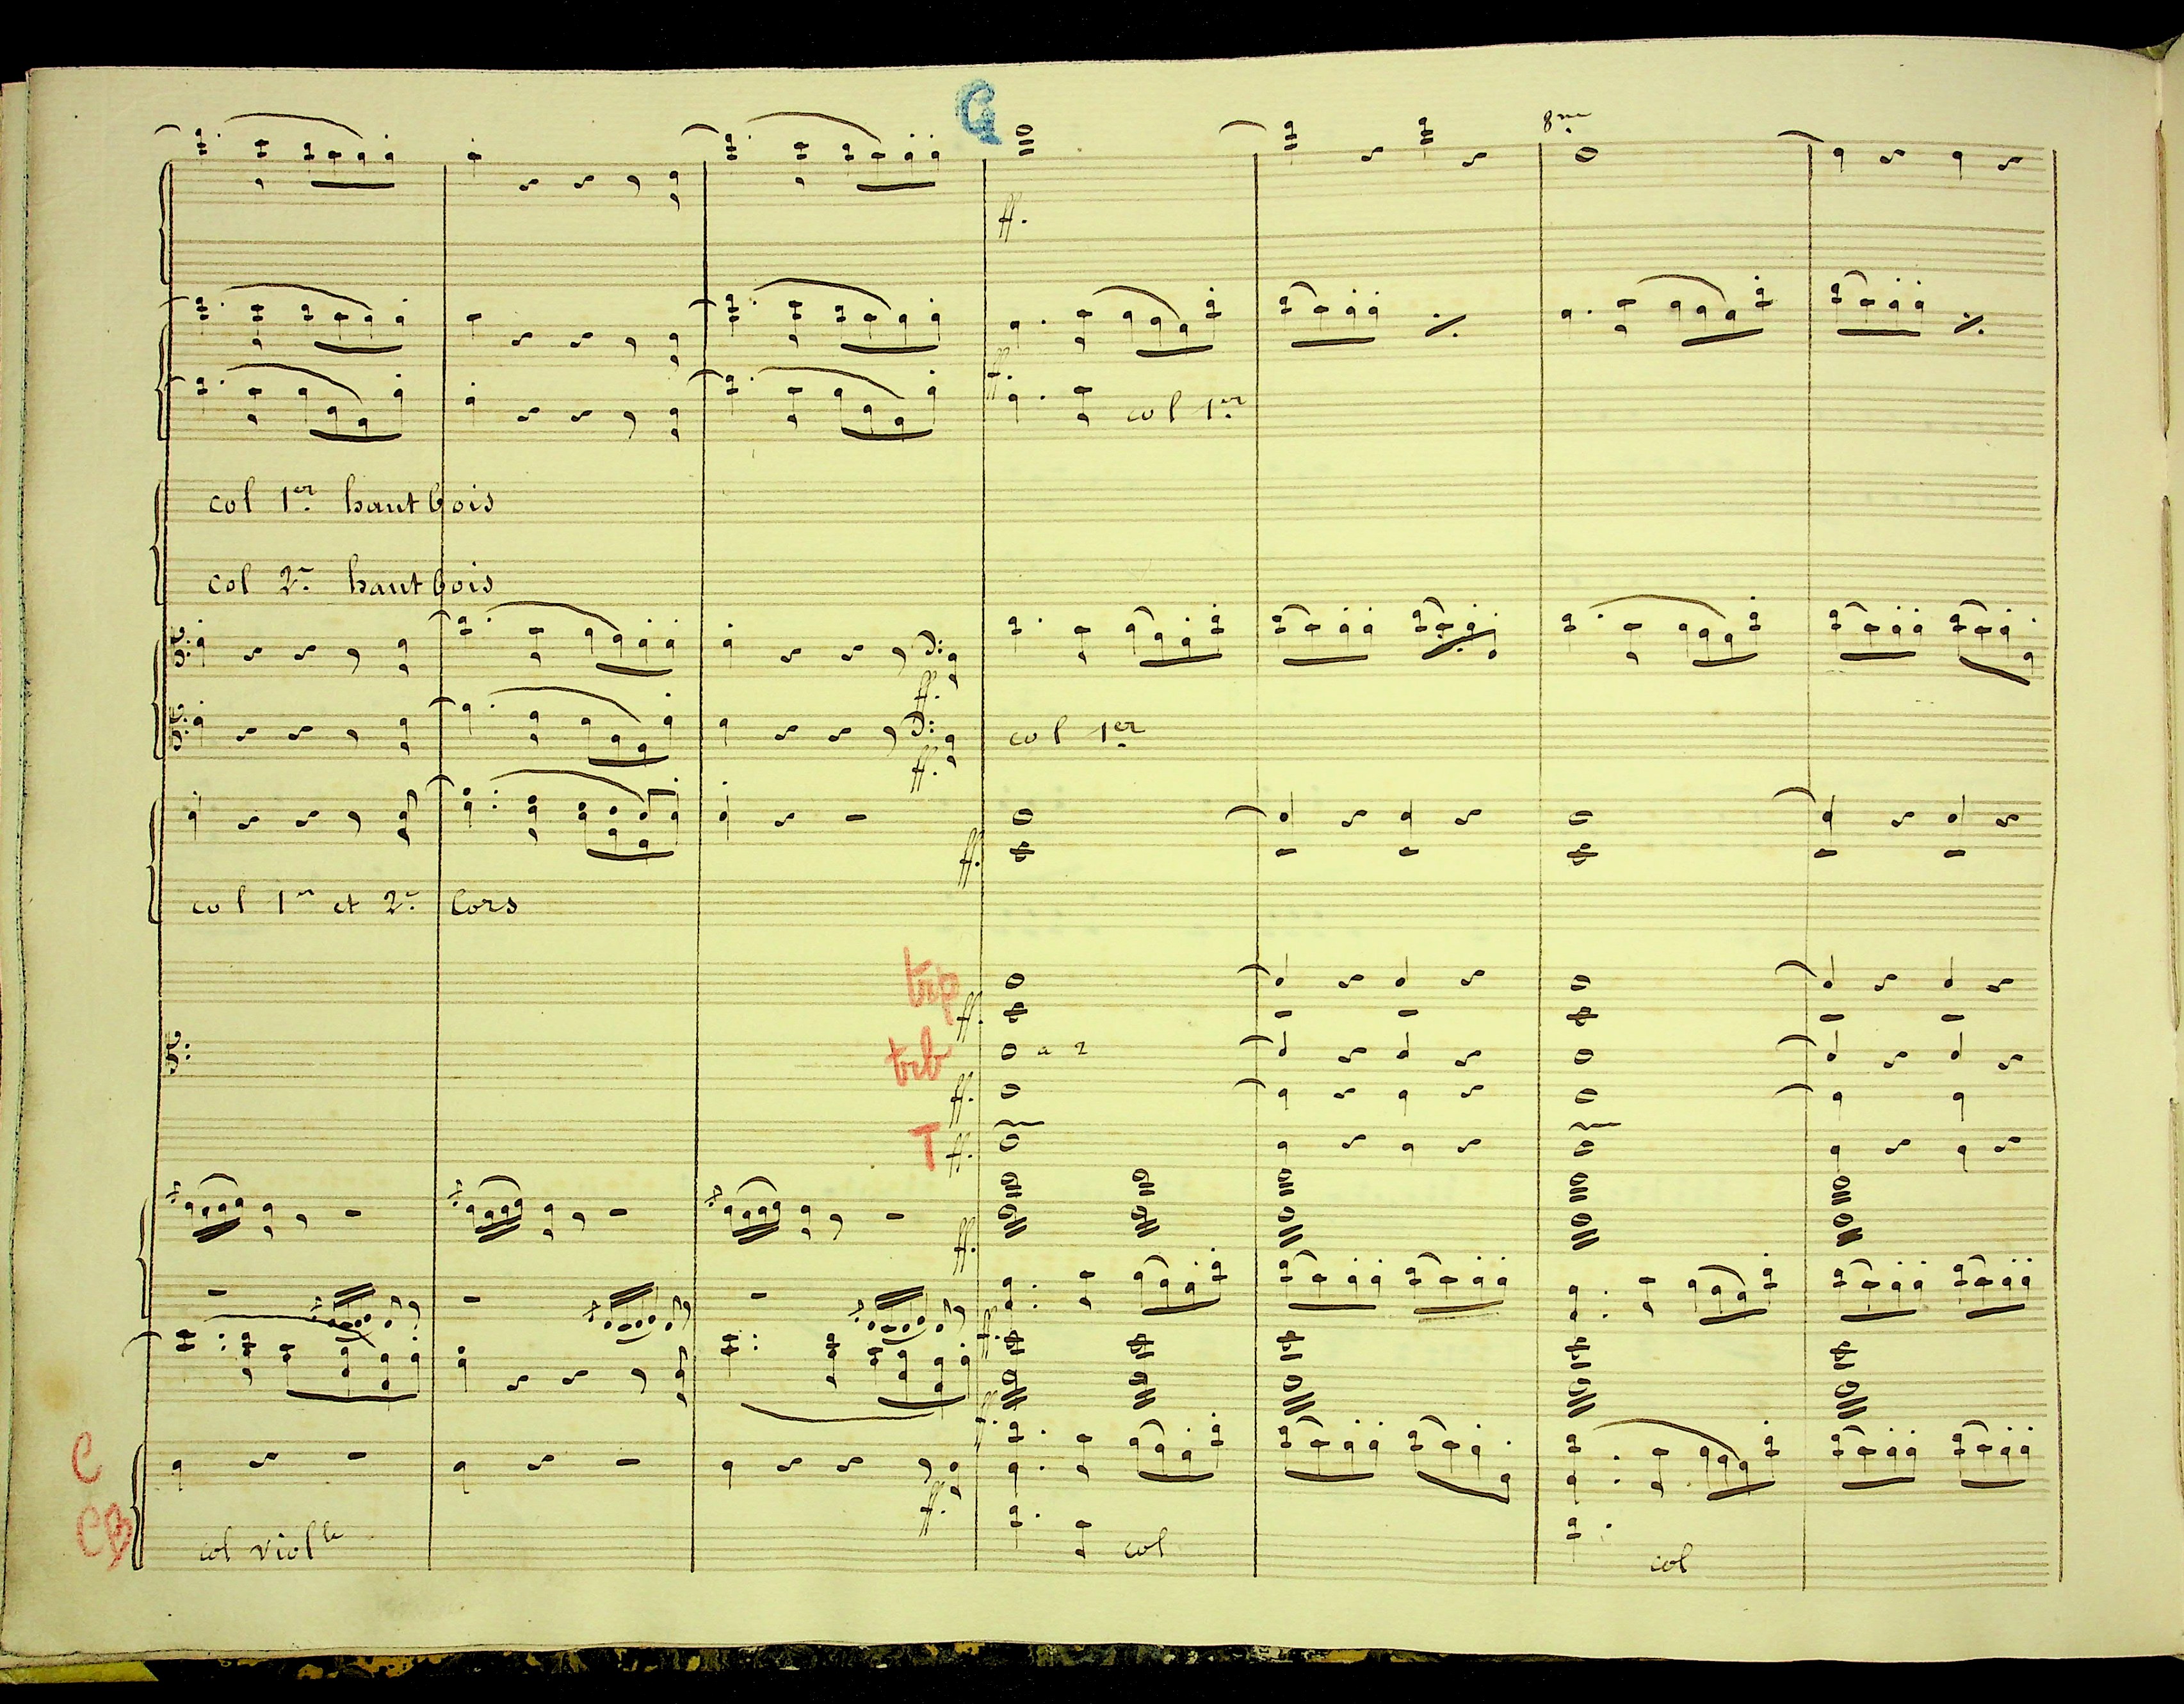 G
8va
ff.
ff.
col 1er
col 1er hautbois
col 2e hautbois
ff.
ff.
col 1er
ff.
col 1er et 2e Cors
trp
ff.
trb
a 2
ff.
T
ff.
ff.
ff.
ff.
C
ff.
CB
col violle
col
col